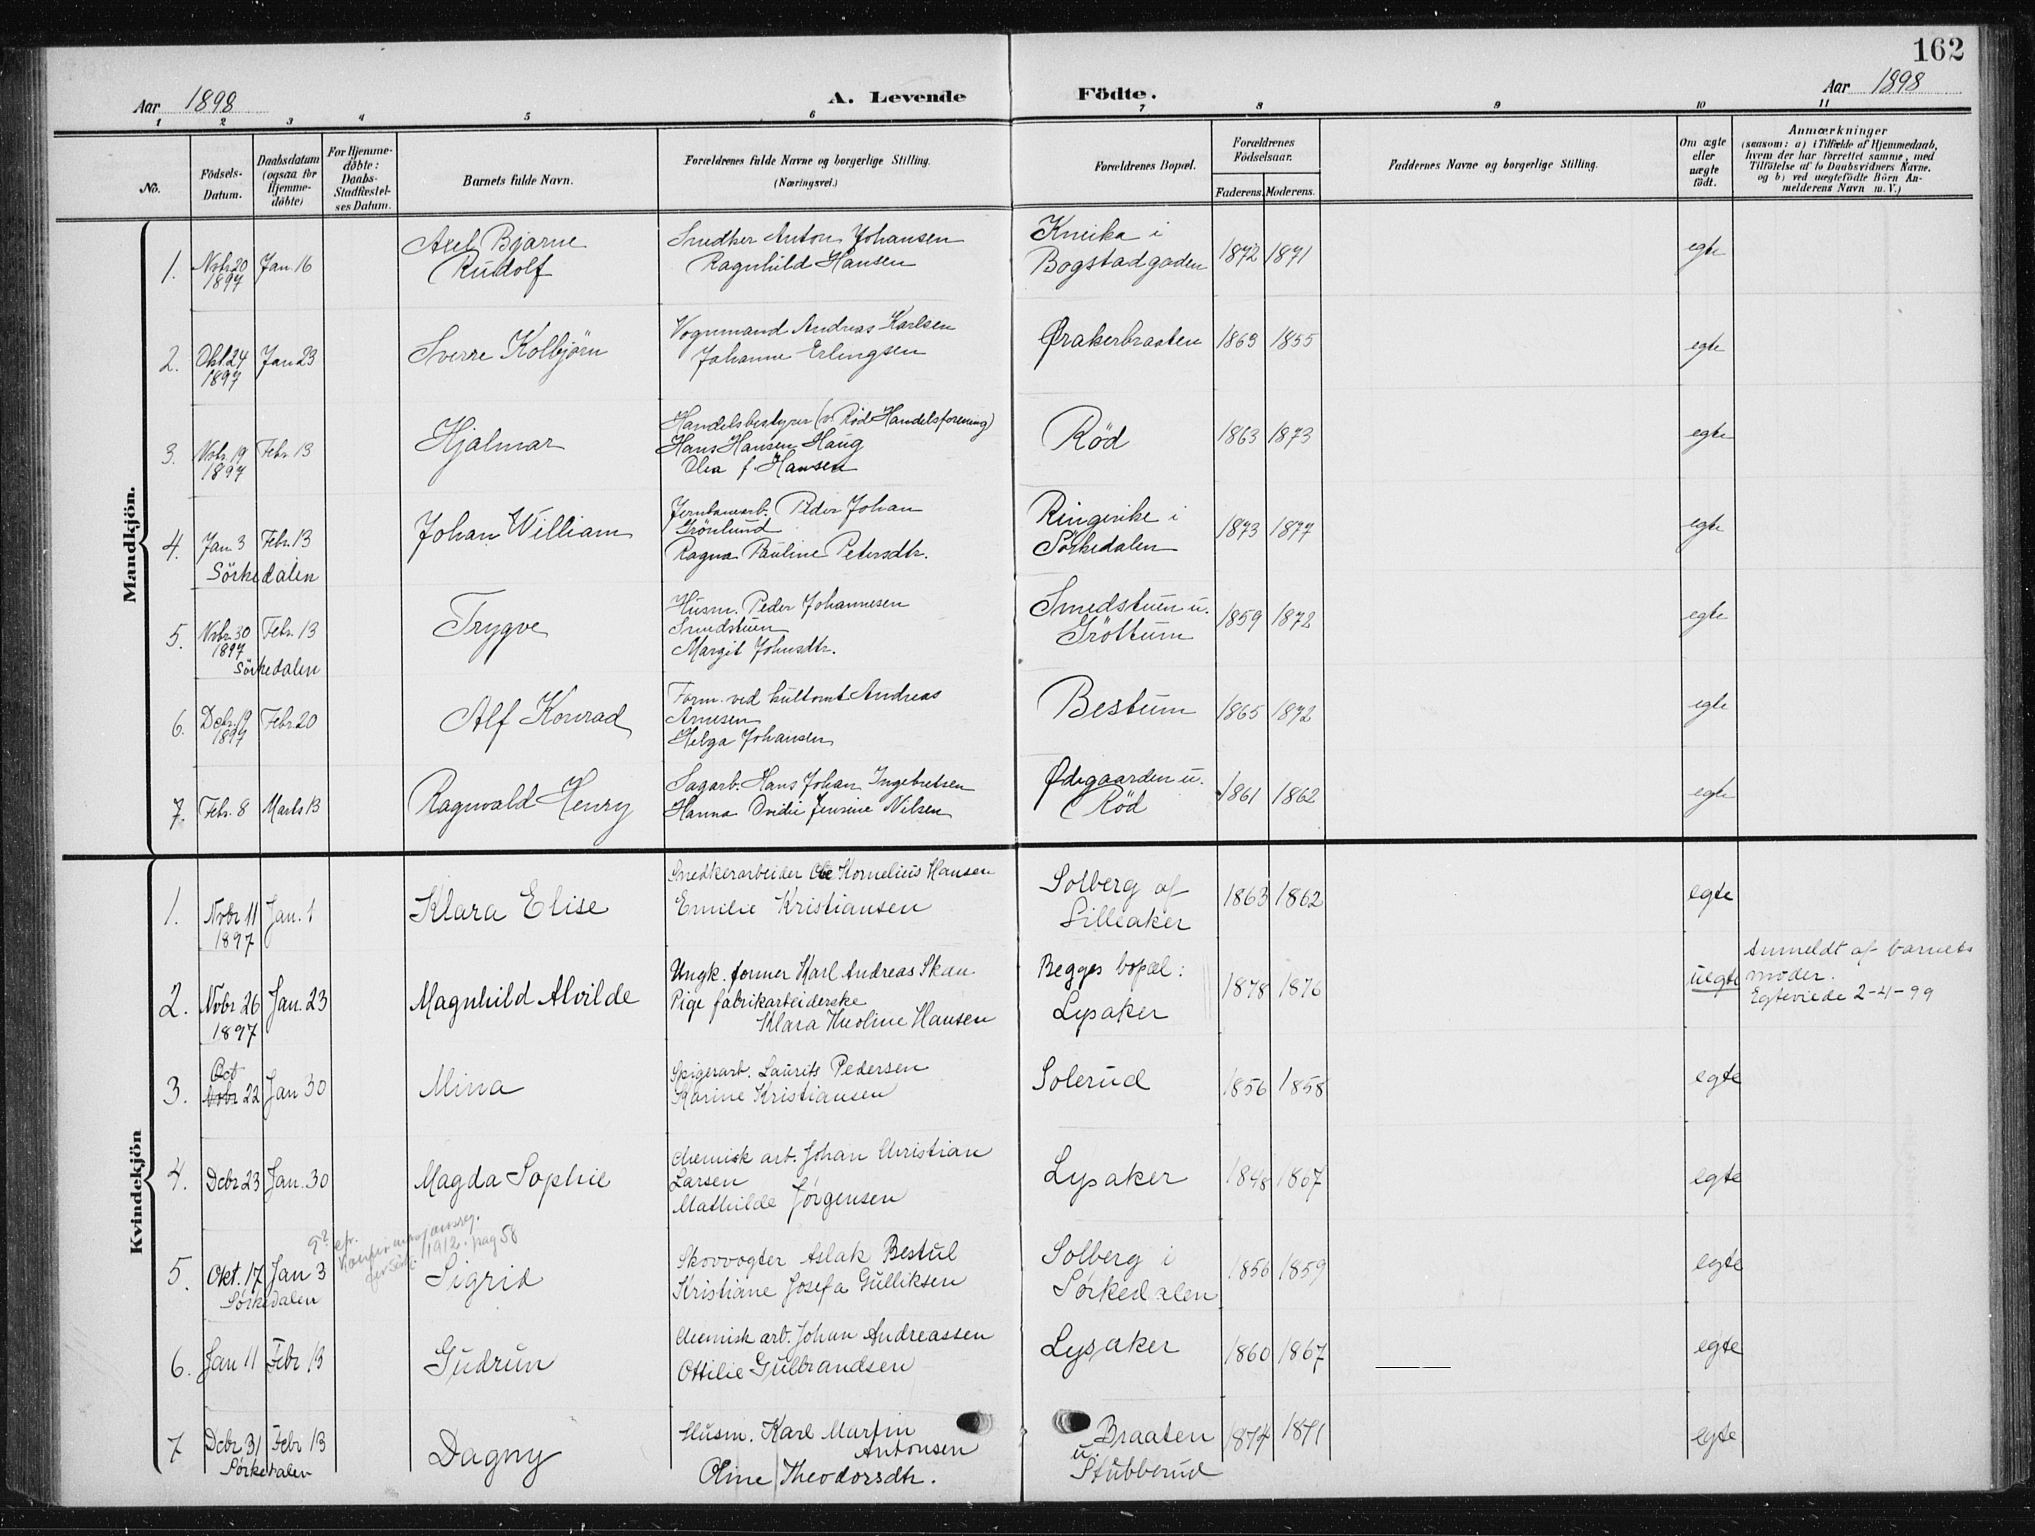 162
Aar 1898
A. Levende Födte.
Aar 1898
1 2 3 4 5 6 7 8 9 10 11
No.
Födsels-
Datum.
Daabsdatum
(ogsaa for
Hjemme-
döbte)
For Hjemme-
döbte:
Daabs-
Stadfæstel-
ses Datum.
Barnets fulde Navn.
Forældrenes fulde Navne og borgerlige Stilling.
(Næringsvei.)
Forældrenes Bopæl.
Forældrenes
Födselsaar.
Faderens. Moderens.
Faddernes Navne og borgerlige Stilling.
Om ægte
eller
uægte
födt.
Anmærkninger
(saasom: a) i Tilfælde af Hjemmedaab,
hvem der har forrettet samme, med
Tilföielse af to Daabsvidners Navne.
og b) ved uægtefödte Börn An-
melderens Navn m. V.)
Mandkjön.
1. Novbr. 20 1897 Jan. 16
Axel Bjarne
Rudolf
Snedker Anton Johansen
Ragnhild Hansen
Kneika i
Bogstadgaden
1872 1871 egte
2. Okt. 24 1897 Jan 23
Sverre Kolbjörn
Vognmand Andreas Karlsen
Johanne Erlingsen
Ørakerbraaten
1863 1855 egte
3. Novbr. 19 1897 Febr. 13
Hjalmar
Handelsbestyrer (v. Röd Handelsforening)
Hans Hansen Haug
Olea f. Hansen
Röd
1863 1873 egte
4. Jan. 3 Febr. 13
Sörkedalen
Johan William
Jernbanearb. Peder Johan
Grönlund
Ragna Pauline Petersdtr.
Ringerike i
Sörkedalen
1873 1877 egte
5. Novbr. 30 1897 Febr. 13
Sörkedalen
Trygve
Husm. Peder Johannesen
Smedstuen
Margit Johnsdtr.
Smedstuen u.
Gröttum
1859 1872 egte
6. Debr. 19 1897 Febr. 20
Alf Konrad
Form. ved Andreas
Arnesen
Helga Johansen
Bestum
1865 1872 egte
7. Febr. 8 Marts 13
Ragnvald Henry
Sagarb. Hans Johan Ingebretsen
Hanna Ovidie Jensine Nilsen
Ødegaarden u.
Röd
1861 1862 egte
Kvindekjön
1. Novbr 11 1897 Jan. 1
Klara Elise
Snedkerarbeider Ole Kornelius Hansen
Emilie Kristiansen
Solberg af
Lilleaker
1863 1862 egte
2. Novbr 26 1897 Jan. 23
Magnhild Alvilde
Ungk. former Karl Andreas Skau
Pige fabrikarbeiderske
Klara Theoline Hansen
Begges bopæl:
Lysaker
1878 1876 uegte
Anmeldt af barnets
moder.
Egteviede 2-4-99
3. Oct Novbr 22 Jan 30
Mina
Spigerarb. Laurits Pedersen
Karine Kristiansen
Solerud
1856 1858 egte
4. Debr 23 Jan. 30
Magda Sophie
Chemisk arb. Johan Christian
Larsen
Mathilde Jørgensen
Lysaker
1848 1867 egte
5. Okt. 17 Jan 3
Sørkedalen
1912. pag 58
Sigrid
Skovvogter Aslak Bestul
Kristiane Josefa Gulliksen
Solberg i
Sørkedalen
1856 1859 egte
6. Jan 11 Febr 13
Gudrun
Chemisk arb. Johan Andreassen
Ottilie Gulbrandsen
Lysaker
1860 1867 egte
7 Debr 31 Febr 13
Sørkedalen
Dagny
Husm. Karl Martin
Antonsen
Oline Theodorsdtr.
Braaten
u.
Stubberud
1874 1871 egte